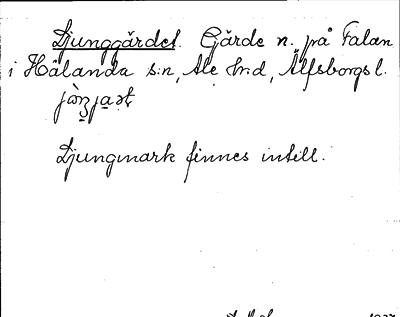 Ljunggärdet. Gärde n. på Falan
i Hålanda s:n, Ale h:d, Älfsborgs l.
Ljungmark finnes intill.